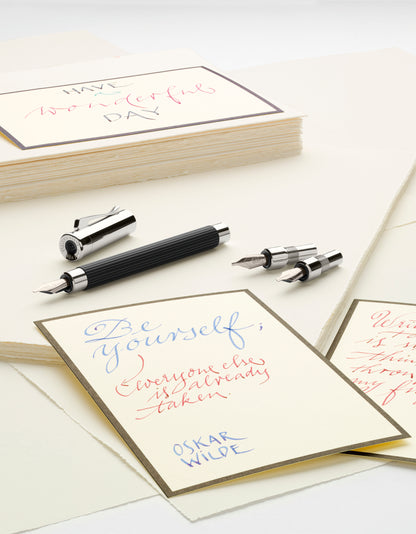 HAVE
a
wonderful
DAY
Be
yourself;
everyone else
is already
taken.
OSKAR
WILDE
Wr
is
thin
thron
my f